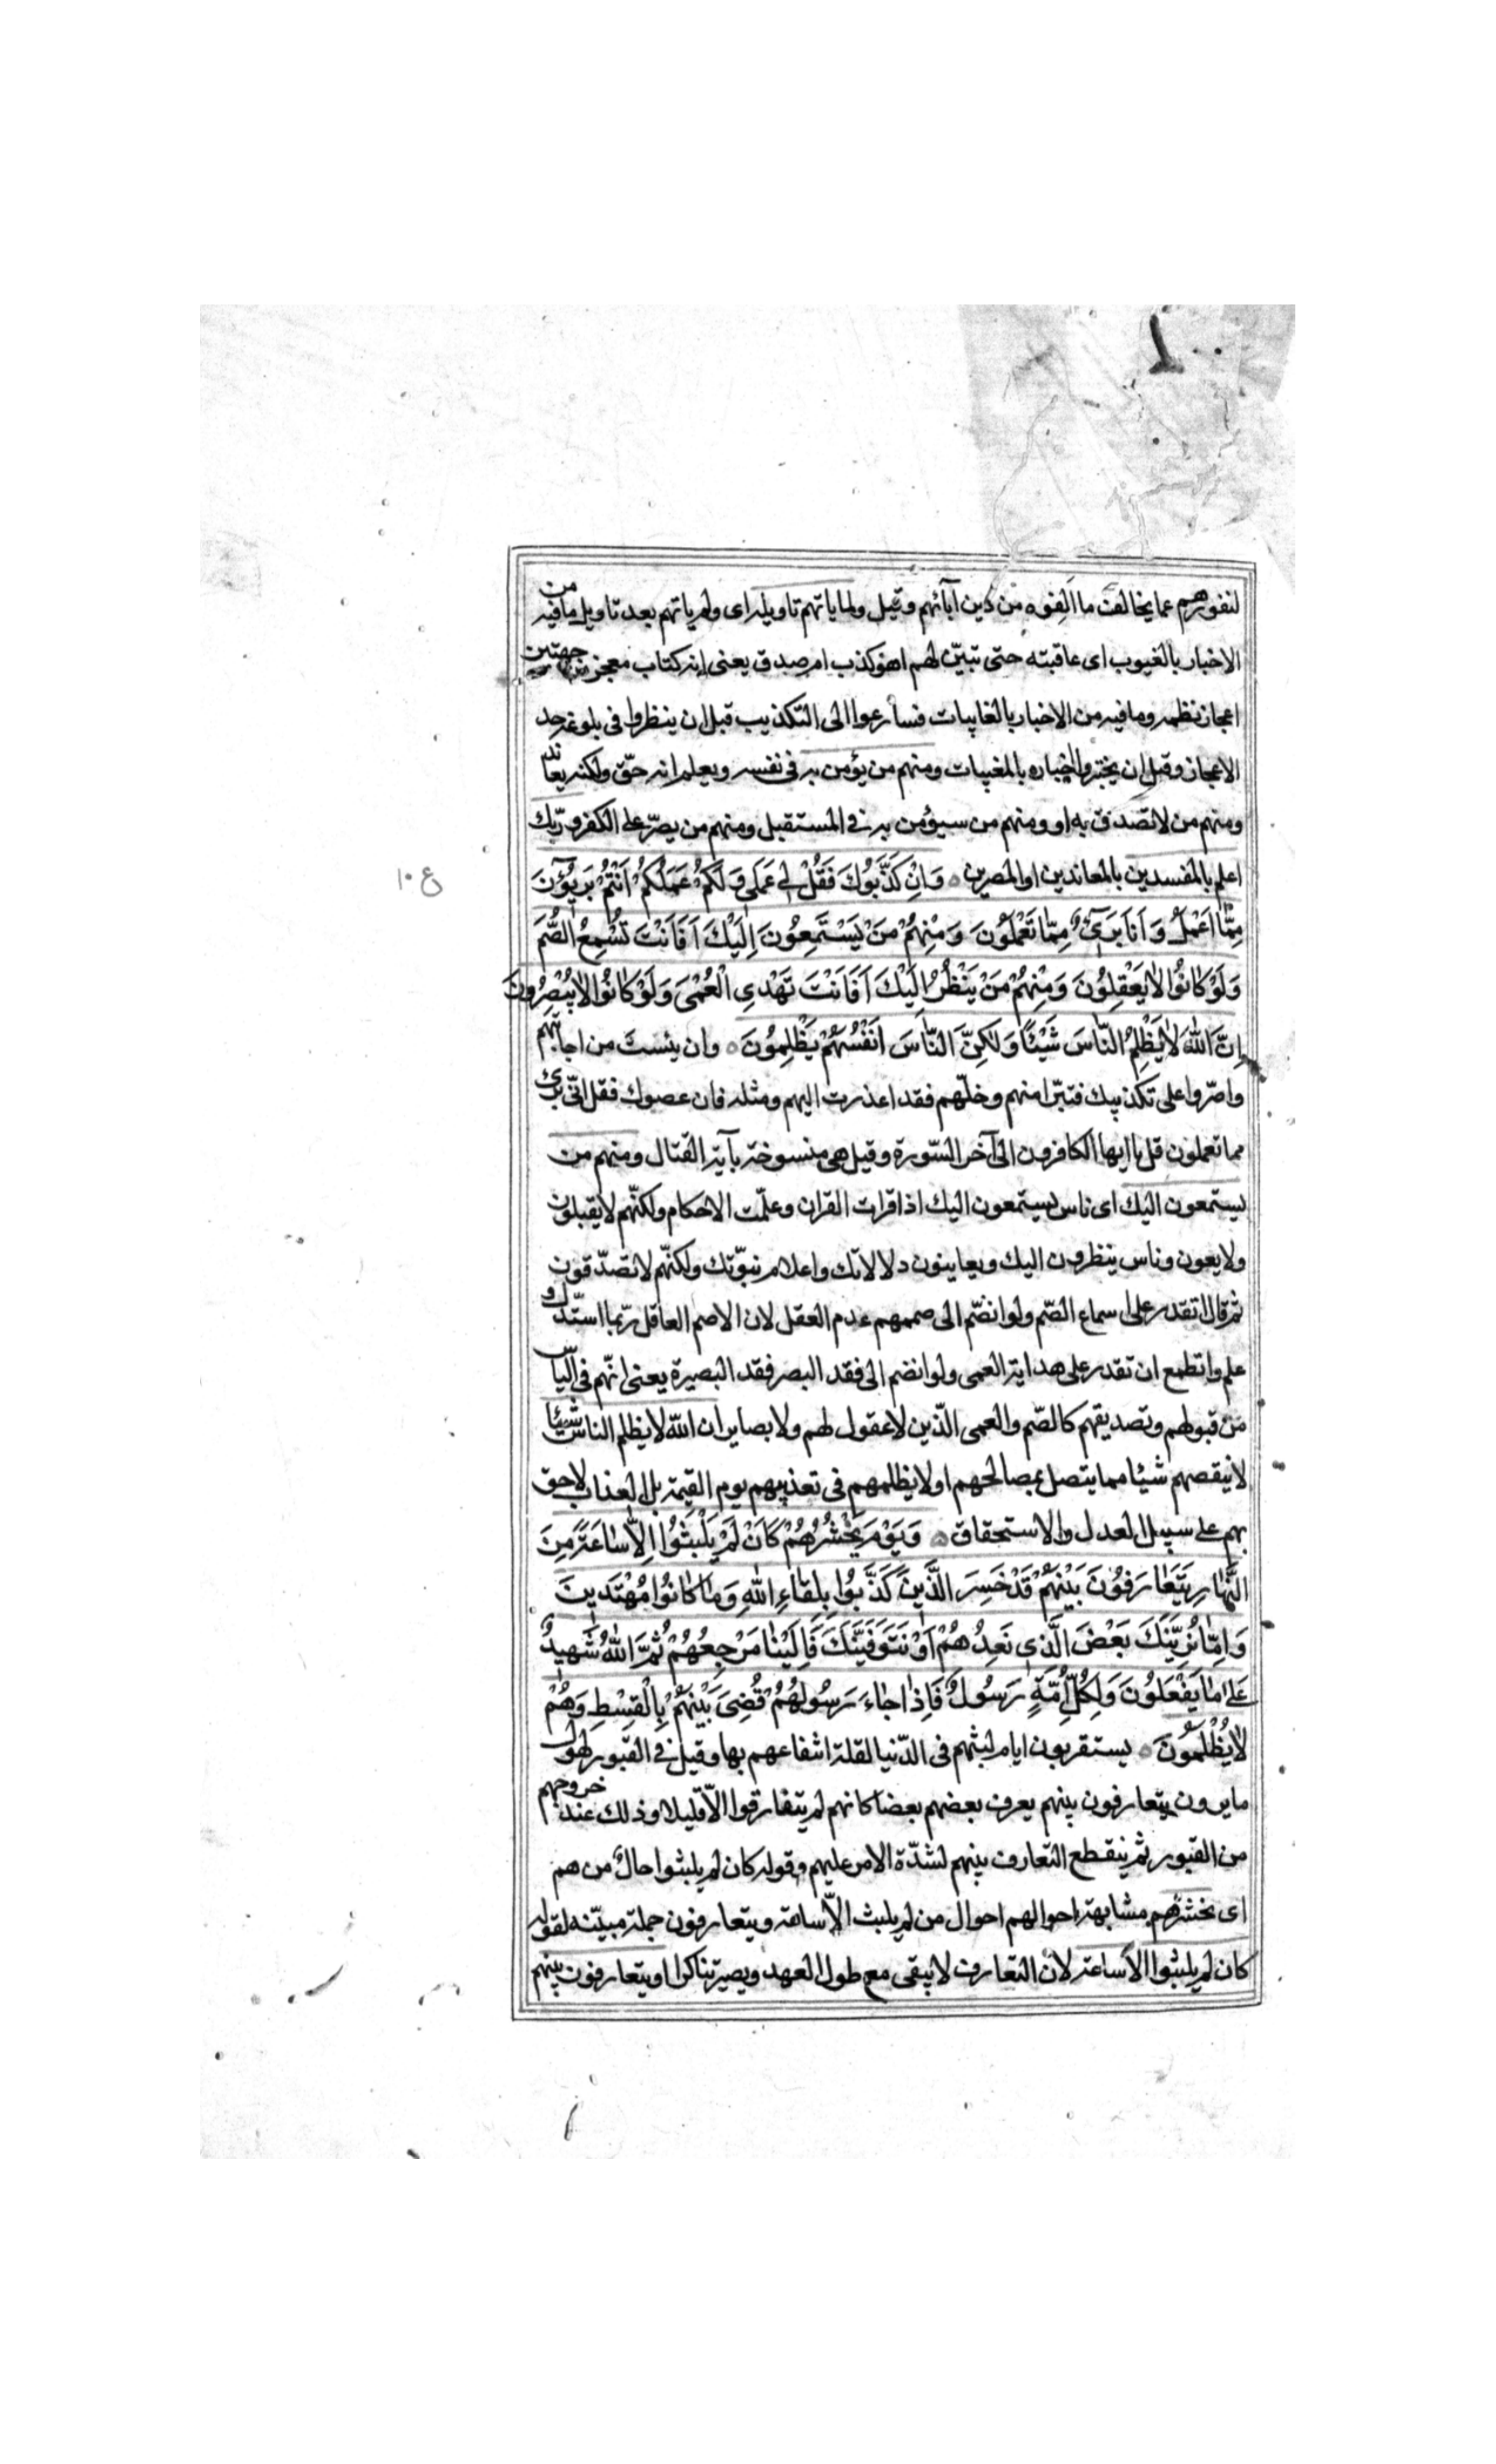 لنفورهم عما يخالف ما الفوه من دين آبائهم وقيل ولما ياتهم تاويله اى ولم ياتهم بعد تاويل ما فيه من
الاخبار بالغيوب اى عاقبته حتى تبيّن لهم اهو كذب ام صدق يعنى انه كتاب معجز من جهتين
اعجاز نظمه وما فيه من الاخبار بالغايبات فسارعوا الى التكذيب قبل ان ينظروا فى بلوغه حد
الاعجاز وقبل ان يختبروا اخباره بالمغيبات ومنهم من يؤمن به فى نفسه ويعلم انه حقّ ولكنه يعاند
ومنهم من لا تصدق به او ومنهم من سيؤمن به فى المستقبل ومنهم من يصرّ على الكفر وربّك
اعلم بالمفسدين بالمعاندين او المصرين ۝ وَاِنْ كَذَّبُوكَ فَقُلْ لِى عَمَلِى وَلَكُمْ عَمَلُكُمْ اَنْتُمْ بَرِيؤُنَ
ع ١٠
مِمَّا اَعْمَلُ وَاَنَا بَرِىٓءٌ مِمَّا تَعْمَلُونَ وَمِنْهُمْ مَنْ يَسْتَمِعُونَ اِلَيْكَ اَفَاَنْتَ تُسْمِعُ الصُّمَّ
وَلَوْ كَانُوا لَا يَعْقِلُونَ وَمِنْهُمْ مَنْ يَنْظُرُ اِلَيْكَ اَفَاَنْتَ تَهْدِى الْعُمْىَ وَلَوْ كَانُوا لَا يُبْصِرُونَ
اِنَّ اللّٰهَ لَا يَظْلِمُ النَّاسَ شَيْئًا وَلٰكِنَّ النَّاسَ اَنْفُسَهُمْ يَظْلِمُونَ ۝ وان يئست من اجابتهم
واصرّوا على تكذيبك فتبرّا منهم وخلّهم فقد اعذرت اليهم ومثله فان عصوك فقل انّى برئ
مما تعملون قل يا ايها الكافرون الى آخر السّورة وقيل هى منسوخة بآية القتال ومنهم من
يستمعون اليك اى ناس يستمعون اليك اذا قرات القران وعلّمت الاحكام ولكنّهم لا يقبلون
ولا يعون وناس ينظرون اليك ويعاينون دلالاتك واعلام نبوّتك ولكنّهم لا تصدّقون
ثم قال اتقدر على اسماع الصّم ولو انضّم الى صممهم عدم العقل لان الاصم العاقل ربّما استدّل و
علم واتطمع ان تقدر على هداية العمى ولو انضم الى فقد البصر فقد البصيرة يعنى انّهم فى الياس
من قبولهم وتصديقهم كالصّم والعمى الذّين لا عقول لهم ولا بصاير ان اللّٰه لا يظلم الناس شيئا
لا ينقصهم شيئا مما يتصل بمصالحهم او لا يظلمهم فى تعذيبهم يوم القيمة بل العذاب لاحق
بهم على سبيل العدل والاستحقاق ۝ وَيَوْمَ يَحْشُرُهُمْ كَاَنْ لَمْ يَلْبَثُوا اِلَّا سَاعَةً مِنَ
النَّهَارِ يَتَعَارَفُونَ بَيْنَهُمْ قَدْ خَسِرَ الَّذِينَ كَذَّبُوا بِلِقَاءِ اللّٰهِ وَمَا كَانُوا مُهْتَدِينَ
وَاِمَّا نُرِيَنَّكَ بَعْضَ الَّذِى نَعِدُهُمْ اَوْ نَتَوَفَّيَنَّكَ فَاِلَيْنَا مَرْجِعُهُمْ ثُمَّ اللّٰهُ شَهِيدٌ
عَلٰى مَا يَفْعَلُونَ وَلِكُلِّ اُمَّةٍ رَسُولٌ فَاِذَا جَاءَ رَسُولُهُمْ قُضِىَ بَيْنَهُمْ بِالْقِسْطِ وَهُمْ
لَا يُظْلَمُونَ ۝ يستقربون ايام لبثهم فى الدّنيا لقلة انتفاعهم بها وقيل فى القبور لهول
ما يرون يتعارفون بينهم يعرف بعضهم بعضا كانهم لم يتفارقوا الّا قليلا وذلك عند خروجهم
من القبور ثم ينقطع التعارف بينهم لشدّة الامر عليهم وقوله كان لم يلبثوا حال من هم
اى نحشرهم مشابهة احوالهم احوال من لم يلبث الّا ساعة ويتعارفون جملة مبيّنه لقوله
كان لم يلبثوا الا ساعة لان التعارف لا يبقى مع طول العهد ويصير تناكرا او يتعارفون بينهم